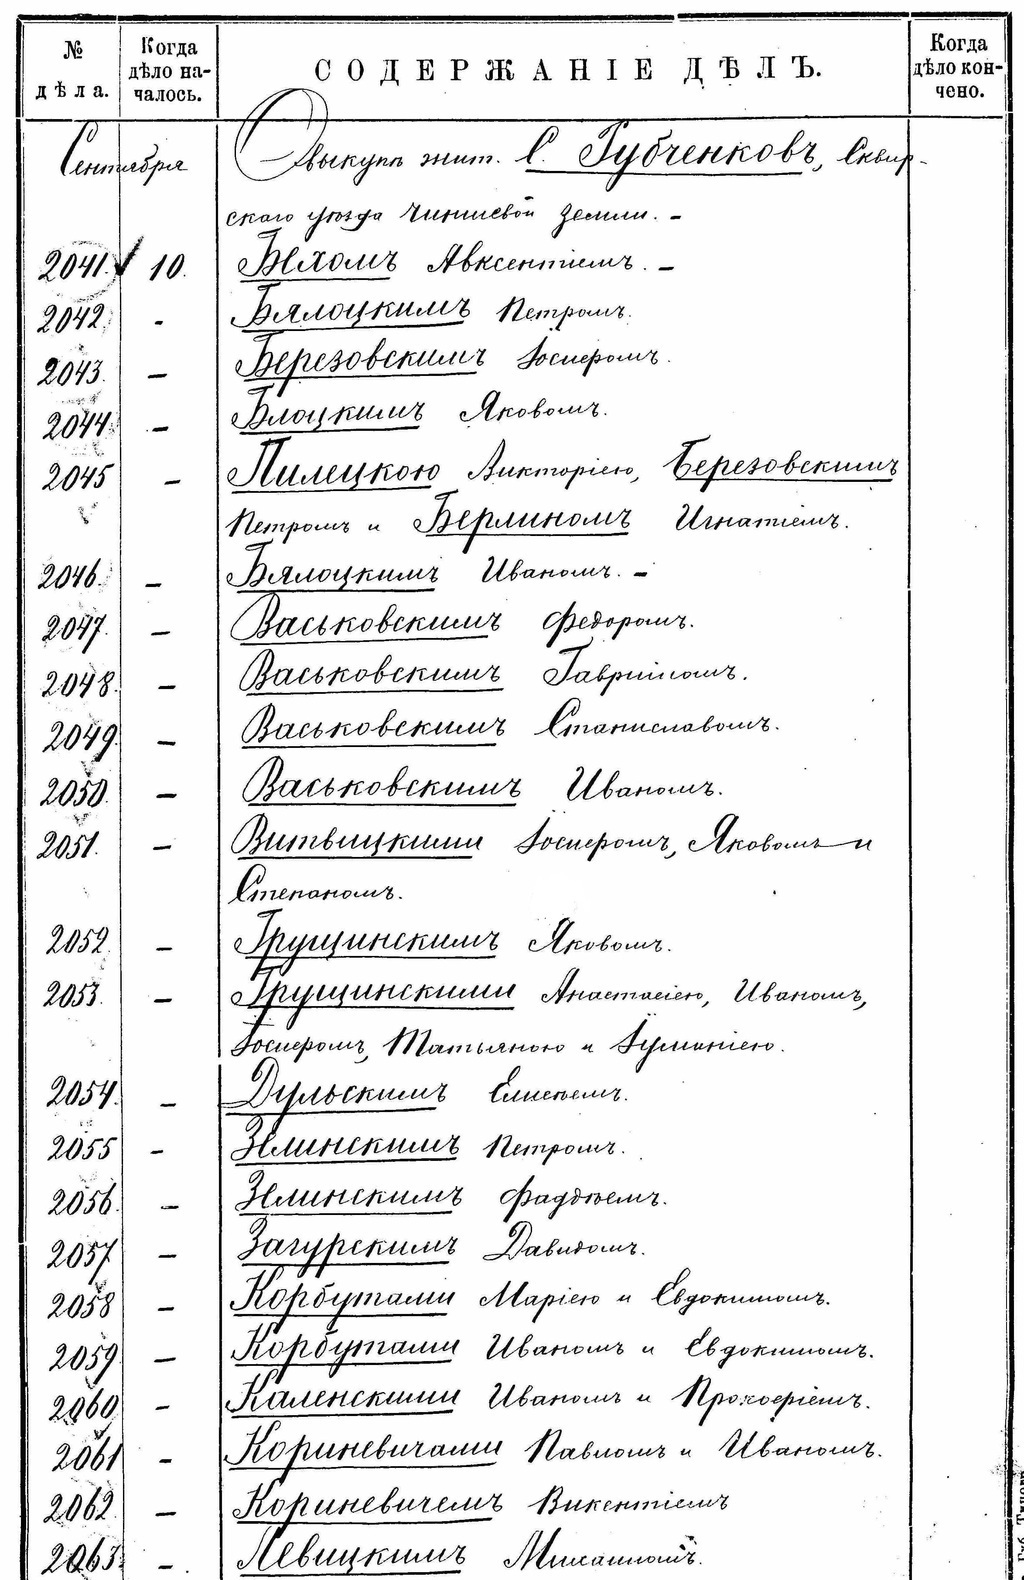 № дѣла. Когда дѣло началось. СОДЕРЖАНІЕ ДѢЛЪ. Когда дѣло кончено.
Сентября О выкупѣ жит. С. Рубченковъ, Сквир-
скаго уѣзда Чиншевой Земли. -
2041. 10. Бѣлымъ Авксентіемъ. -
2042. - Бялоцкимъ Петромъ.
2043. - Березовскимъ Іосифомъ.
2044. - Блоцкимъ Яковомъ.
2045 - Пилецкою Викторіею, Березовскимъ
Петромъ и Берлиномъ Игнатіемъ.
2046. - Бялоцкимъ Иваномъ. -
2047. - Васьковскимъ Федоромъ.
2048. - Васьковскимъ Гавріиломъ.
2049. - Васьковскимъ Станиславомъ.
2050. - Васьковскимъ Иваномъ.
2051. - Витвицкими Іосифомъ, Яковомъ и
Степаномъ.
2052. - Грущинскимъ Яковомъ.
2053. - Грущинскими Анастасіею, Иваномъ,
Іосифомъ, Татьяною и
2054. - Дульскимъ Елисѣемъ.
2055 - Злинскимъ Петромъ.
2056. - Злинскимъ Фаддѣемъ.
2057 - Загурскимъ Давидомъ.
2058 - Корбутами Маріею и Евдокимомъ.
2059 - Корбутами Иваномъ и Евдокимомъ.
2060 - Каленскими Иваномъ и Прокофіемъ.
2061 - Кориневичами Павломъ и Иваномъ.
2062. - Кориневичемъ Викентіемъ
2063. - Левицкимъ Михаиломъ.